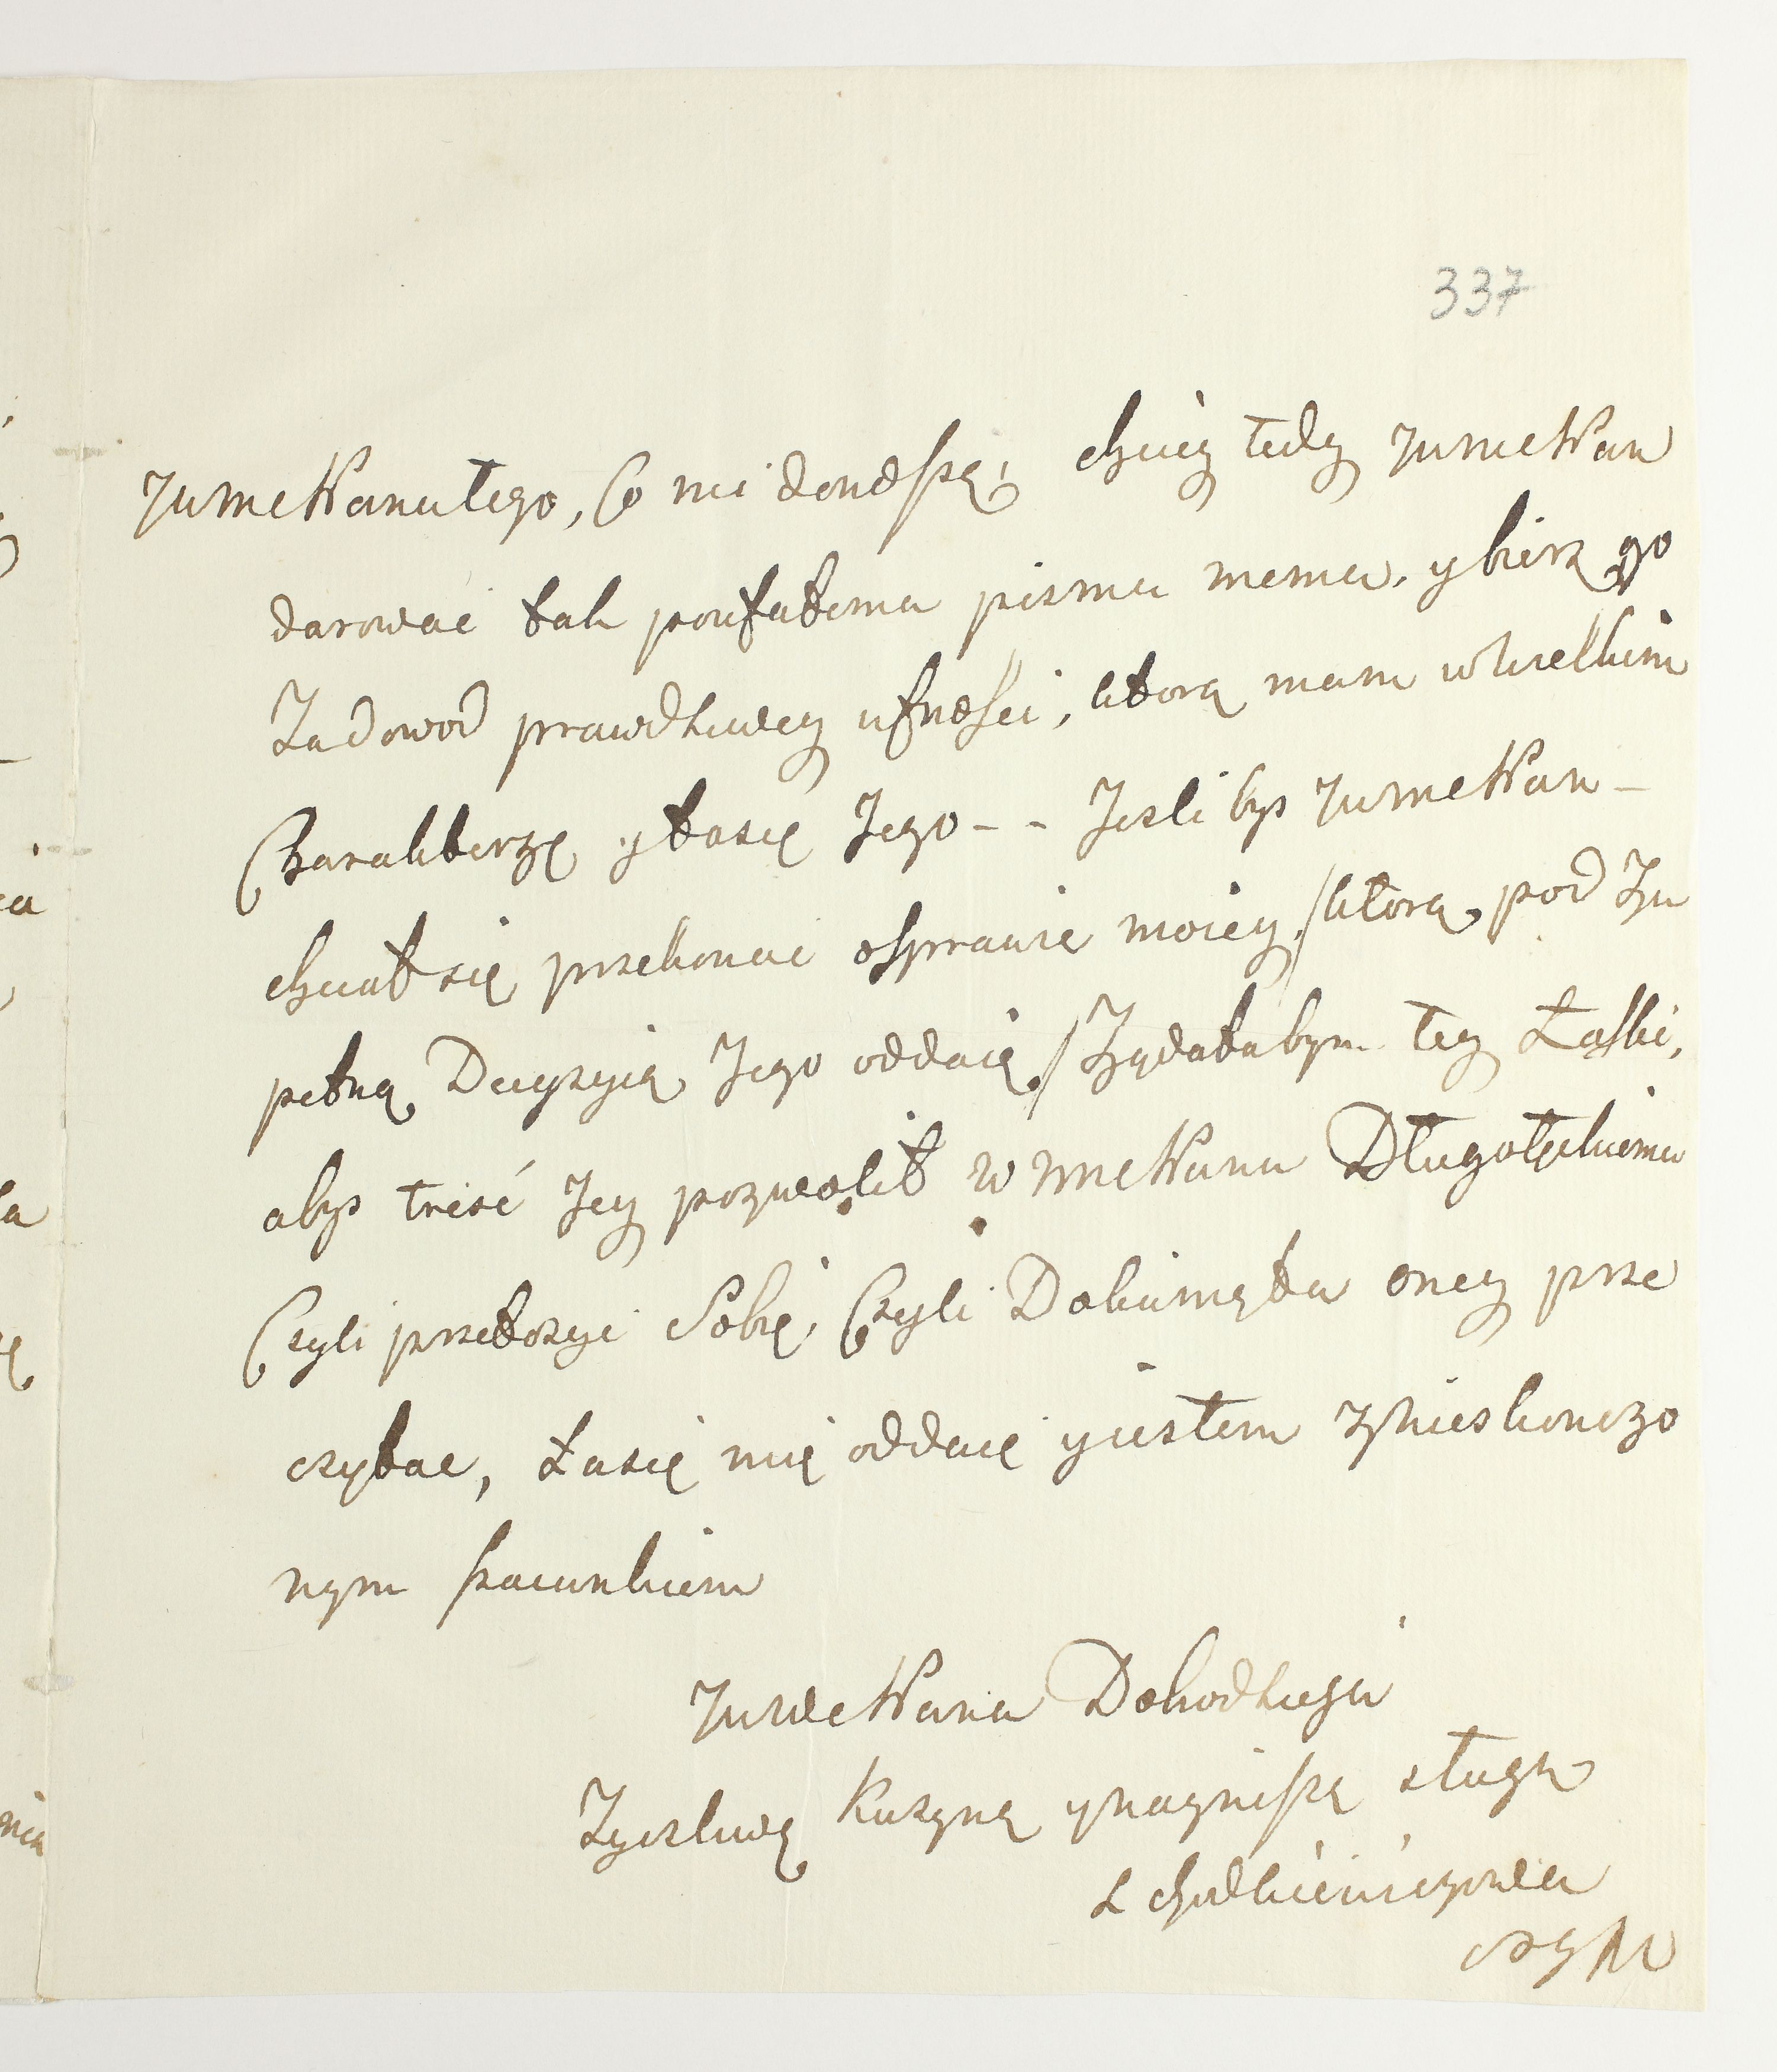 337
JWmcWanu tego, Co mi doneśżą; chciey tedy JWmcWan
darować tak poufałemu pismu memu, y bierz go
Za dowod prawdziwey ufności, ktorą mam w wielkim
Charakterze y łasce Jego - - Jesli bys JWmcWan -
chciał się przekonać o sprawie moiey, /ktorą pod Zu
pełną Decyzyią Jego oddaię,/ Ządałabym tey Łaski,
abys treść Jey pozwolił WmcWanu Długołęckiemu
Czyli przełozyc Sobie, Czyli Dokumęta oney prze
czytac, Łasce mię oddaię y iestem z nieskonczo
nym szacunkiem
JWmcWana Dobrodzieja
Zyczliwą Kuzyną y naynisżą sługą
L Chodkiewiczowa